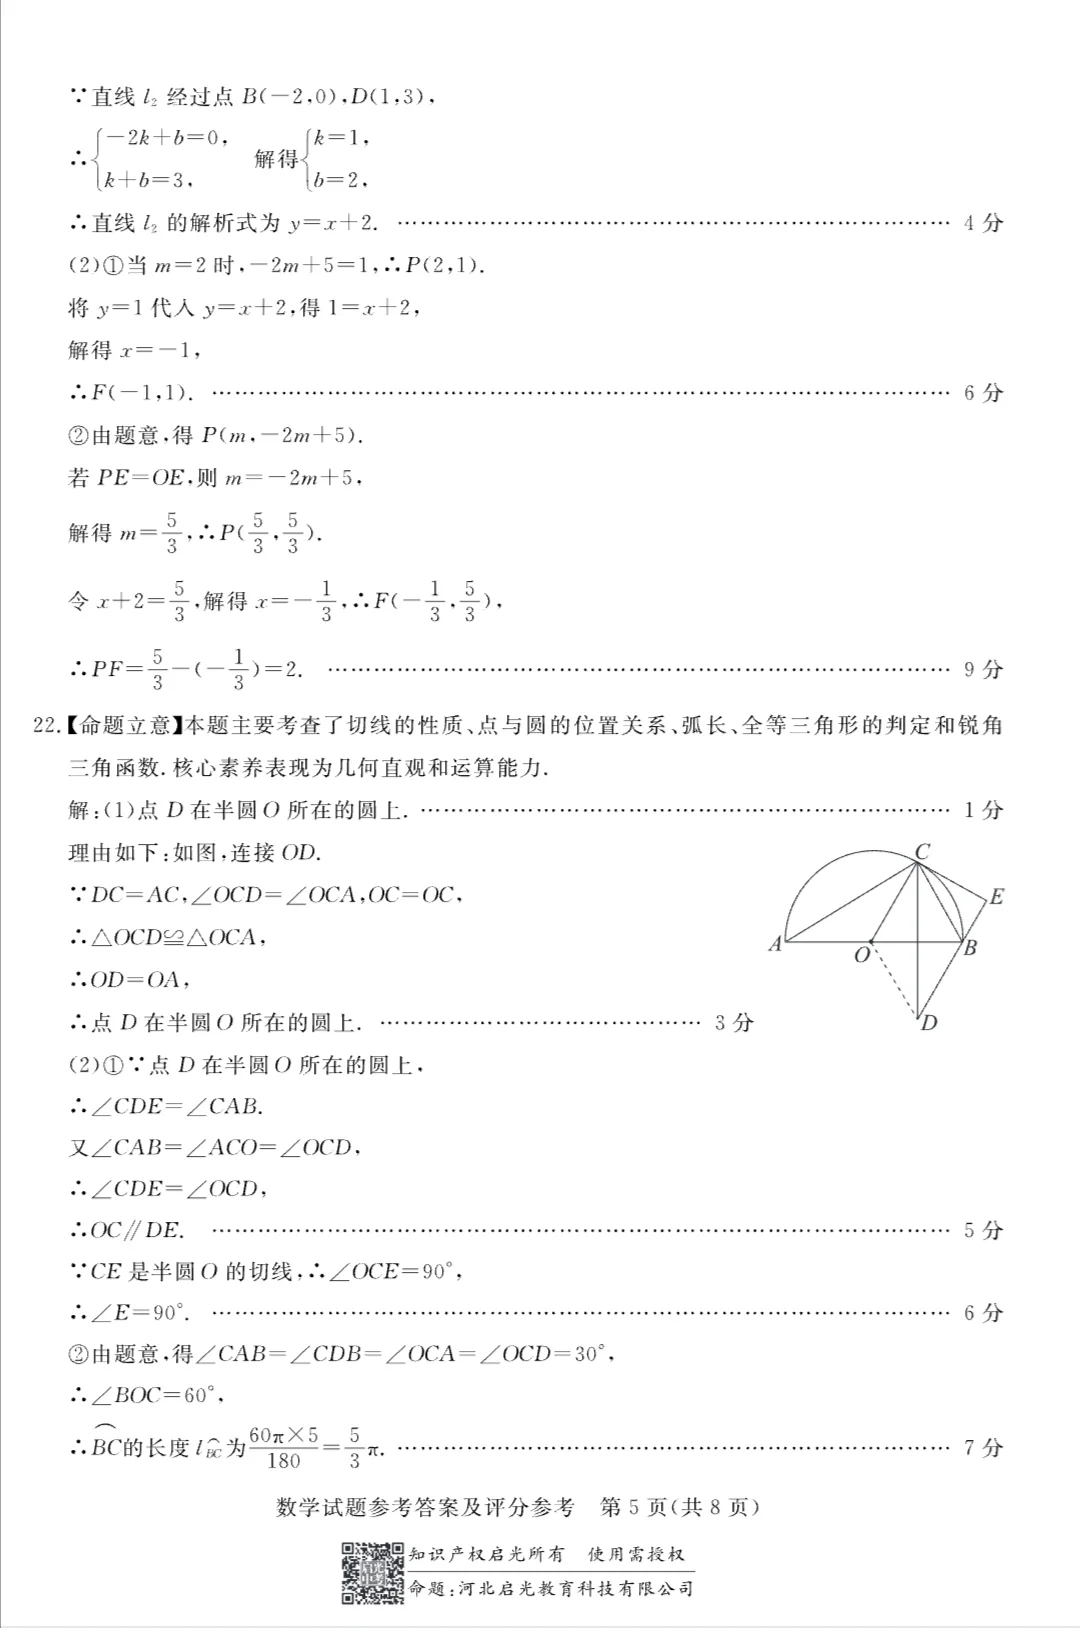 ∵直线 l₂ 经过点 B(−2,0),D(1,3),
∴{−2k+b=0, k+b=3, 解得{k=1, b=2,
∴直线 l₂ 的解析式为 y=x+2. …… 4 分
(2)①当 m=2 时,−2m+5=1,∴P(2,1).
将 y=1 代入 y=x+2,得 1=x+2,
解得 x=−1,
∴F(−1,1). …… 6 分
②由题意,得 P(m,−2m+5).
若 PE=OE,则 m=−2m+5,
解得 m=5/3,∴P(5/3,5/3).
令 x+2=5/3,解得 x=−1/3,∴F(−1/3,5/3),
∴PF=5/3−(−1/3)=2. …… 9 分
22.【命题立意】本题主要考查了切线的性质、点与圆的位置关系、弧长、全等三角形的判定和锐角
三角函数. 核心素养表现为几何直观和运算能力.
解:(1)点 D 在半圆 O 所在的圆上. …… 1 分
理由如下:如图,连接 OD.
∵DC=AC,∠OCD=∠OCA,OC=OC,
∴△OCD≌△OCA,
∴OD=OA,
∴点 D 在半圆 O 所在的圆上. …… 3 分
C
E
A
O
B
D
(2)①∵点 D 在半圆 O 所在的圆上,
∴∠CDE=∠CAB.
又∠CAB=∠ACO=∠OCD,
∴∠CDE=∠OCD,
∴OC∥DE. …… 5 分
∵CE 是半圆 O 的切线,∴∠OCE=90°,
∴∠E=90°. …… 6 分
②由题意,得∠CAB=∠CDB=∠OCA=∠OCD=30°,
∴∠BOC=60°,
∴⌒BC的长度 l⌒BC 为 60π×5/180=5/3π. …… 7 分
数学试题参考答案及评分参考 第 5 页(共 8 页)
知识产权启光所有 使用需授权
命题:河北启光教育科技有限公司